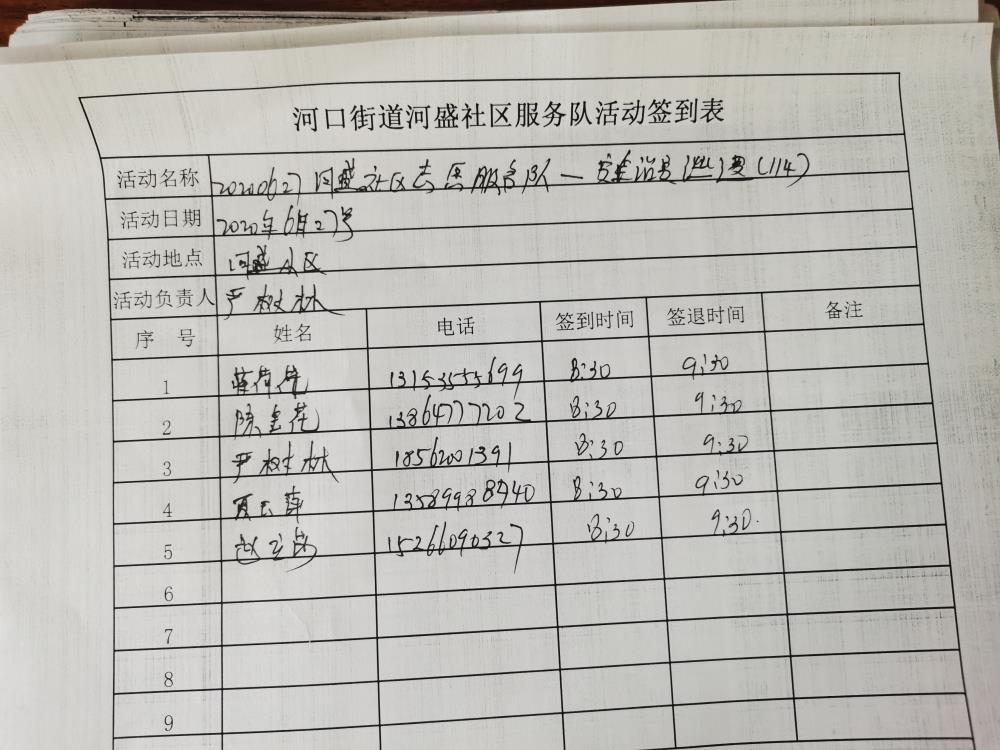 河口街道河盛社区服务队活动签到表
活动名称 20200627河盛社区志愿服务队—安全治安巡逻(114)
活动日期 2020年6月27号
活动地点 河盛社区
活动负责人 严树林
序 号 姓名 电话 签到时间 签退时间 备注
1 13153555699 8:30 9:30
2 陈金花 13864777202 8:30 9:30
3 严树林 18562001391 8:30 9:30
4 13589988940 8:30 9:30
5 15266090327 8:30 9:30
6
7
8
9